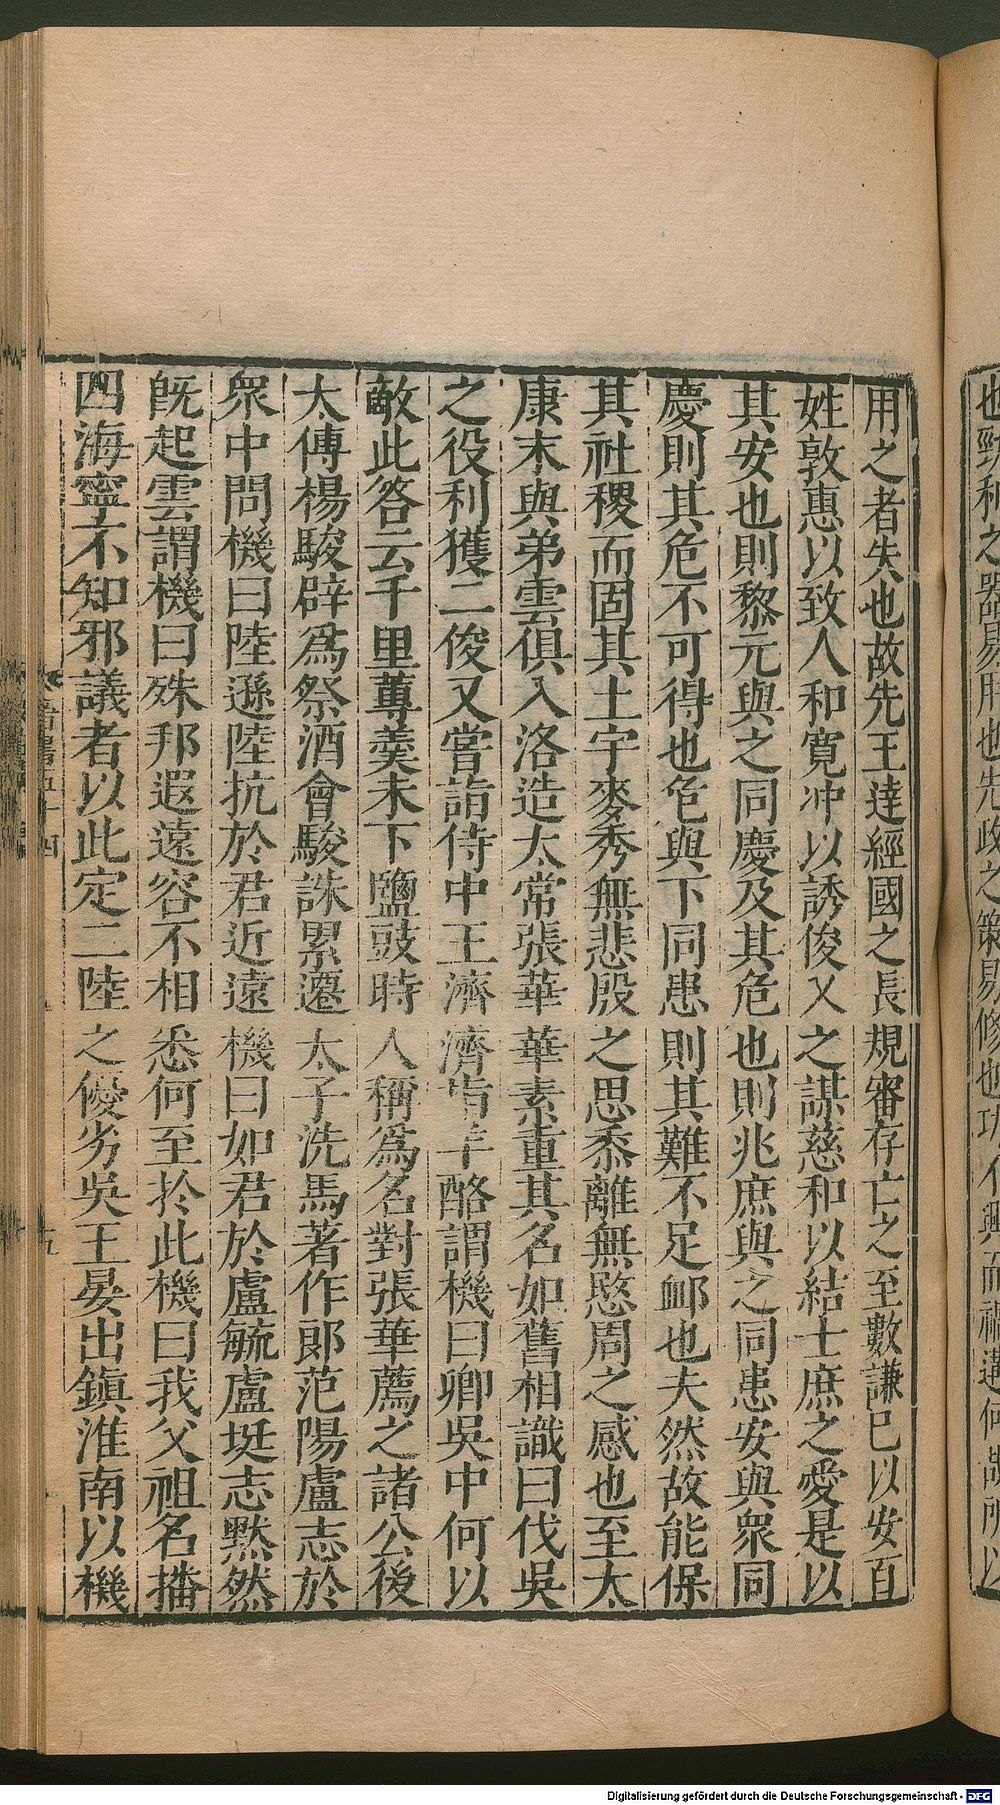 也勁利之器易用也先政之策易修也功不興而禍遘何哉所以
用之者失也故先王達經國之長規審存亡之至數謙已以安百
姓敦惠以致人和寬冲以誘俊乂之謀慈和以結士庶之愛是以
其安也則黎元與之同慶及其危也則兆庶與之同患安與衆同
慶則其危不可得也危與下同患則其難不足衈也夫然故能保
其社稷而固其土宇麥秀無悲殷之思黍離無愍周之感也至太
康末與弟雲俱入洛造太常張華華素重其名如舊相識曰伐吳
之役利獲二俊又嘗詣侍中王濟濟指羊酪謂機曰卿吳中何以
敵此答云千里蓴羹未下鹽豉時人稱爲名對張華薦之諸公後
太傅楊駿辟爲祭酒會駿誅累遷太子洗馬著作郎范陽盧志於
衆中問機曰陸遜陸抗於君近遠機曰如君於盧毓盧珽志黙然
既起雲謂機曰殊邦遐遠容不相悉何至於此機曰我父祖名播
四海寧不知邪議者以此定二陸之優劣吳王晏出鎮淮南以機
晉書五十四 五
Digitalisierung gefördert durch die Deutsche Forschungsgemeinschaft - DFG